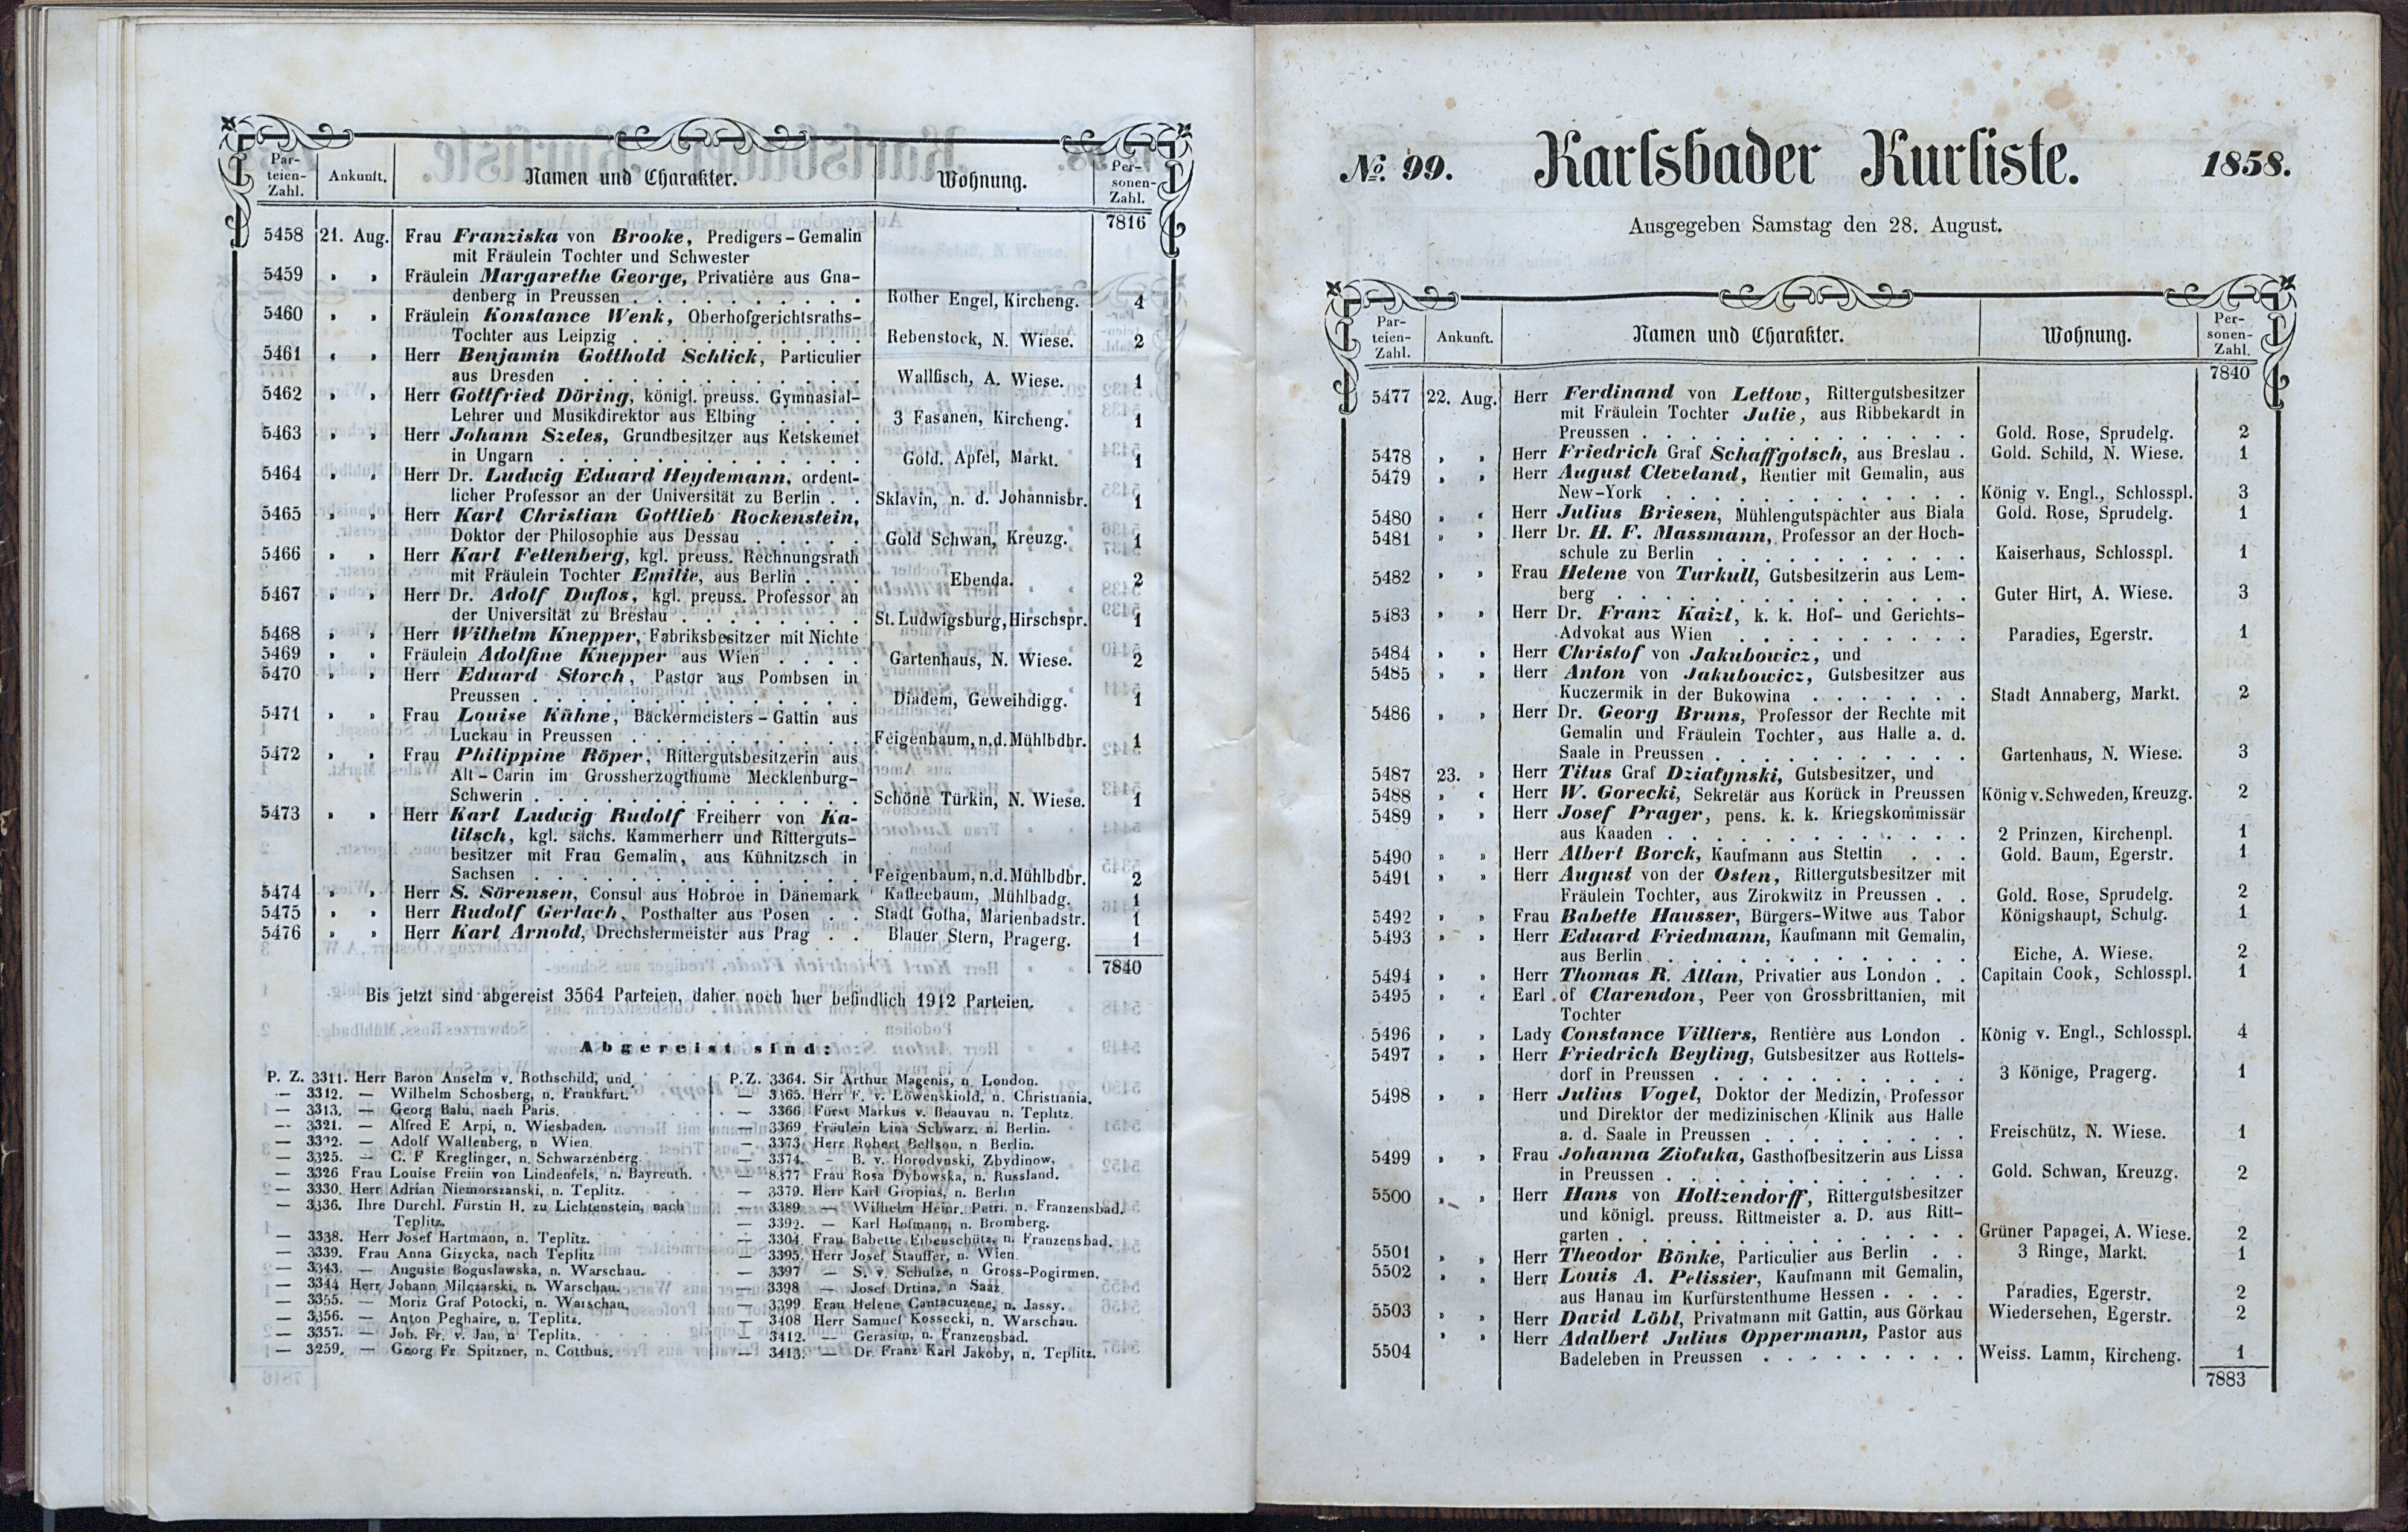 Par-
teien-
Zahl. Ankunft. Namen und Charakter. Wohnung. Per-
sonen-
Zahl.
7816
5458 21. Aug. Frau Franziska von Brooke, Predigers-Gemalin
mit Fräulein Tochter und Schwester
5459 » » Fräulein Margarethe George, Privatière aus Gna-
denberg in Preussen . . . . . . . . . . Rother Engel, Kircheng. 4
5460 » » Fräulein Konstance Wenk, Oberhofgerichtsraths-
Tochter aus Leipzig . . . . . . . . . . Rebenstock, N. Wiese. 2
5461 « » Herr Benjamin Gotthold Schlick, Particulier
aus Dresden . . . . . . . . . . . . Wallfisch, A. Wiese. 1
5462 » » Herr Gottfried Döring, königl. preuss. Gymnasial-
Lehrer und Musikdirektor aus Elbing . . . . 3 Fasanen, Kircheng. 1
5463 » » Herr Johann Szeles, Grundbesitzer aus Ketskemet
in Ungarn . . . . . . . . . . . . Gold. Apfel, Markt. 1
5464 » » Herr Dr. Ludwig Eduard Heydemann, ordent-
licher Professor an der Universität zu Berlin . . Sklavin, n. d. Johannisbr. 1
5465 » » Herr Karl Christian Gottlieb Rockenstein,
Doktor der Philosophie aus Dessau . . . . . Gold Schwan, Kreuzg. 1
5466 » » Herr Karl Fellenberg, kgl. preuss. Rechnungsrath
mit Fräulein Tochter Emilie, aus Berlin . . . Ebenda. 2
5467 » » Herr Dr. Adolf Duflos, kgl. preuss. Professor an
der Universität zu Breslau . . . . . . . . St. Ludwigsburg, Hirschspr. 1
5468 » » Herr Wilhelm Knepper, Fabriksbesitzer mit Nichte
5469 » » Fräulein Adolfine Knepper aus Wien . . . . Gartenhaus, N. Wiese. 2
5470 » » Herr Eduard Storch, Pastor aus Pombsen in
Preussen . . . . . . . . . . . . . . Diadem, Geweihdigg. 1
5471 » » Frau Louise Kühne, Bäckermeisters-Gattin aus
Luckau in Preussen . . . . . . . . . . Feigenbaum, n.d. Mühlbdbr. 1
5472 » » Frau Philippine Röper, Rittergutsbesitzerin aus
Alt-Carin im Grossherzogthume Mecklenburg-
Schwerin . . . . . . . . . . . . . . Schöne Türkin, N. Wiese. 1
5473 » » Herr Karl Ludwig Rudolf Freiherr von Ka-
litsch, kgl. sächs. Kammerherr und Ritterguts-
besitzer mit Frau Gemalin, aus Kühnitzsch in
Sachsen . . . . . . . . . . . . . . Feigenbaum, n.d. Mühlbdbr. 2
5474 » » Herr S. Sörensen, Consul aus Hobroe in Dänemark Kaffeebaum, Mühlbadg. 1
5475 » » Herr Rudolf Gerlach, Posthalter aus Posen . . Stadt Gotha, Marienbadstr. 1
5476 » » Herr Karl Arnold, Drechslermeister aus Prag . . Blauer Stern, Pragerg. 1
7840
Bis jetzt sind abgereist 3564 Parteien, daher noch hier befindlich 1912 Parteien.
Abgereist sind:
P. Z. 3311. Herr Baron Anselm v. Rothschild, und
— 3312. — Wilhelm Schosberg, n. Frankfurt.
— 3313. — Georg Balu, nach Paris.
— 3321. — Alfred E Arpi, n. Wiesbaden.
— 3322. — Adolf Wallenberg, n Wien.
— 3325. — C. F Kreglinger, n. Schwarzenberg.
— 3326 Frau Louise Freiin von Lindenfels, n. Bayreuth.
— 3330. Herr Adrian Niemorszanski, n. Teplitz.
— 3336. Ihre Durchl. Fürstin H. zu Lichtenstein, nach
Teplitz.
— 3338. Herr Josef Hartmann, n. Teplitz.
— 3339. Frau Anna Gizycka, nach Teplitz
— 3343. — Auguste Boguslawska, n. Warschau.
— 3344 Herr Johann Milczarski, n. Warschau.
— 3355. — Moriz Graf Potocki, n. Warschau.
— 3356. — Anton Peghaire, n. Teplitz.
— 3357. — Joh. Fr. v. Jan, n Teplitz.
— 3259. — Georg Fr Spitzner, n. Cottbus.
P. Z. 3364. Sir Arthur Magenis, n. London.
— 3365. Herr F. v. Löwenskiold, n. Christiania.
— 3366 Fürst Markus v. Beauvau n. Teplitz.
— 3369 Fräulein Lina Schwarz. n. Berlin.
— 3373 Herr Robert Bellson, n Berlin.
— 3374. — B. v. Horodynski, Zbydinow.
— 8377 Frau Rosa Dybowska, n. Russland.
— 3379. Herr Karl Gropius, n. Berlin
— 3389 — Wilhelm Heinr. Petri. n. Franzensbad.
— 3392. — Karl Hofmann, n. Bromberg.
— 3304. Frau Babette Eibenschütz, n. Franzensbad.
— 3395. Herr Josef Stauffer, n. Wien
— 3397 — S. v. Schulze, n Gross-Pogirmen.
— 3398 — Josef Drtina, n Saaz.
— 3399. Frau Helene Cantacuzene, n. Jassy.
— 3408 Herr Samuel Kossecki, n. Warschau.
— 3412. — Gerasim, n. Franzensbad.
— 3413. — Dr. Franz Karl Jakoby, n. Teplitz.
No. 99. Karlsbader Kurliste. 1858.
Ausgegeben Samstag den 28. August.
Par-
teien-
Zahl. Ankunft. Namen und Charakter. Wohnung. Per-
sonen-
Zahl.
7840
5477 22. Aug. Herr Ferdinand von Lettow, Rittergutsbesitzer
mit Fräulein Tochter Julie, aus Ribbekardt in
Preussen . . . . . . . . . . . . . . Gold. Rose, Sprudelg. 2
5478 » » Herr Friedrich Graf Schaffgotsch, aus Breslau . Gold. Schild, N. Wiese. 1
5479 » » Herr August Cleveland, Rentier mit Gemalin, aus
New-York . . . . . . . . . . . . . König v. Engl., Schlosspl. 3
5480 » « Herr Julius Briesen, Mühlengutspächter aus Biala Gold. Rose, Sprudelg. 1
5481 » » Herr Dr. H. F. Massmann, Professor an der Hoch-
schule zu Berlin . . . . . . . . . . . Kaiserhaus, Schlosspl. 1
5482 » » Frau Helene von Turkull, Gutsbesitzerin aus Lem-
berg . . . . . . . . . . . . . . . Guter Hirt, A. Wiese. 3
5483 » » Herr Dr. Franz Kaizl, k. k. Hof- und Gerichts-
Advokat aus Wien . . . . . . . . . . Paradies, Egerstr. 1
5484 » » Herr Christof von Jakubowicz, und
5485 » » Herr Anton von Jakubowicz, Gutsbesitzer aus
Kuczermik in der Bukowina . . . . . . . Stadt Annaberg, Markt. 2
5486 » » Herr Dr. Georg Bruns, Professor der Rechte mit
Gemalin und Fräulein Tochter, aus Halle a. d.
Saale in Preussen . . . . . . . . . . . Gartenhaus, N. Wiese. 3
5487 23. » Herr Titus Graf Dziatynski, Gutsbesitzer, und
5488 » « Herr W. Gorecki, Sekretär aus Korück in Preussen König v. Schweden, Kreuzg. 2
5489 » » Herr Josef Prager, pens. k. k. Kriegskommissär
aus Kaaden . . . . . . . . . . . . . 2 Prinzen, Kirchenpl. 1
5490 » » Herr Albert Borck, Kaufmann aus Stettin . . . Gold. Baum, Egerstr. 1
5491 » » Herr August von der Osten, Rittergutsbesitzer mit
Fräulein Tochter, aus Zirokwitz in Preussen . . Gold. Rose, Sprudelg. 2
5492 » » Frau Babette Hausser, Bürgers-Witwe aus Tabor Königshaupt, Schulg. 1
5493 » » Herr Eduard Friedmann, Kaufmann mit Gemalin,
aus Berlin . . . . . . . . . . . . . . Eiche, A. Wiese. 2
5494 » » Herr Thomas R. Allan, Privatier aus London . . Capitain Cook, Schlosspl. 1
5495 » « Earl of Clarendon, Peer von Grossbrittanien, mit
Tochter
5496 » » Lady Constance Villiers, Rentière aus London . König v. Engl., Schlosspl. 4
5497 » » Herr Friedrich Beyling, Gutsbesitzer aus Rottels-
dorf in Preussen . . . . . . . . . . . 3 Könige, Pragerg. 1
5498 » » Herr Julius Vogel, Doktor der Medizin, Professor
und Direktor der medizinischen Klinik aus Halle
a. d. Saale in Preussen . . . . . . . . . Freischütz, N. Wiese. 1
5499 » » Frau Johanna Ziotuka, Gasthofbesitzerin aus Lissa
in Preussen . . . . . . . . . . . . . Gold. Schwan, Kreuzg. 2
5500 » » Herr Hans von Holtzendorff, Rittergutsbesitzer
und königl. preuss. Rittmeister a. D. aus Ritt-
garten . . . . . . . . . . . . . . . Grüner Papagei, A. Wiese. 2
5501 » » Herr Theodor Bönke, Particulier aus Berlin . . 3 Ringe, Markt. 1
5502 » » Herr Louis A. Pelissier, Kaufmann mit Gemalin,
aus Hanau im Kurfürstenthume Hessen . . . . Paradies, Egerstr. 2
5503 » » Herr David Löbl, Privatmann mit Gattin, aus Görkau Wiedersehen, Egerstr. 2
» » Herr Adalbert Julius Oppermann, Pastor aus
5504 Badeleben in Preussen . . . . . . . . . Weiss. Lamm, Kircheng. 1
7883